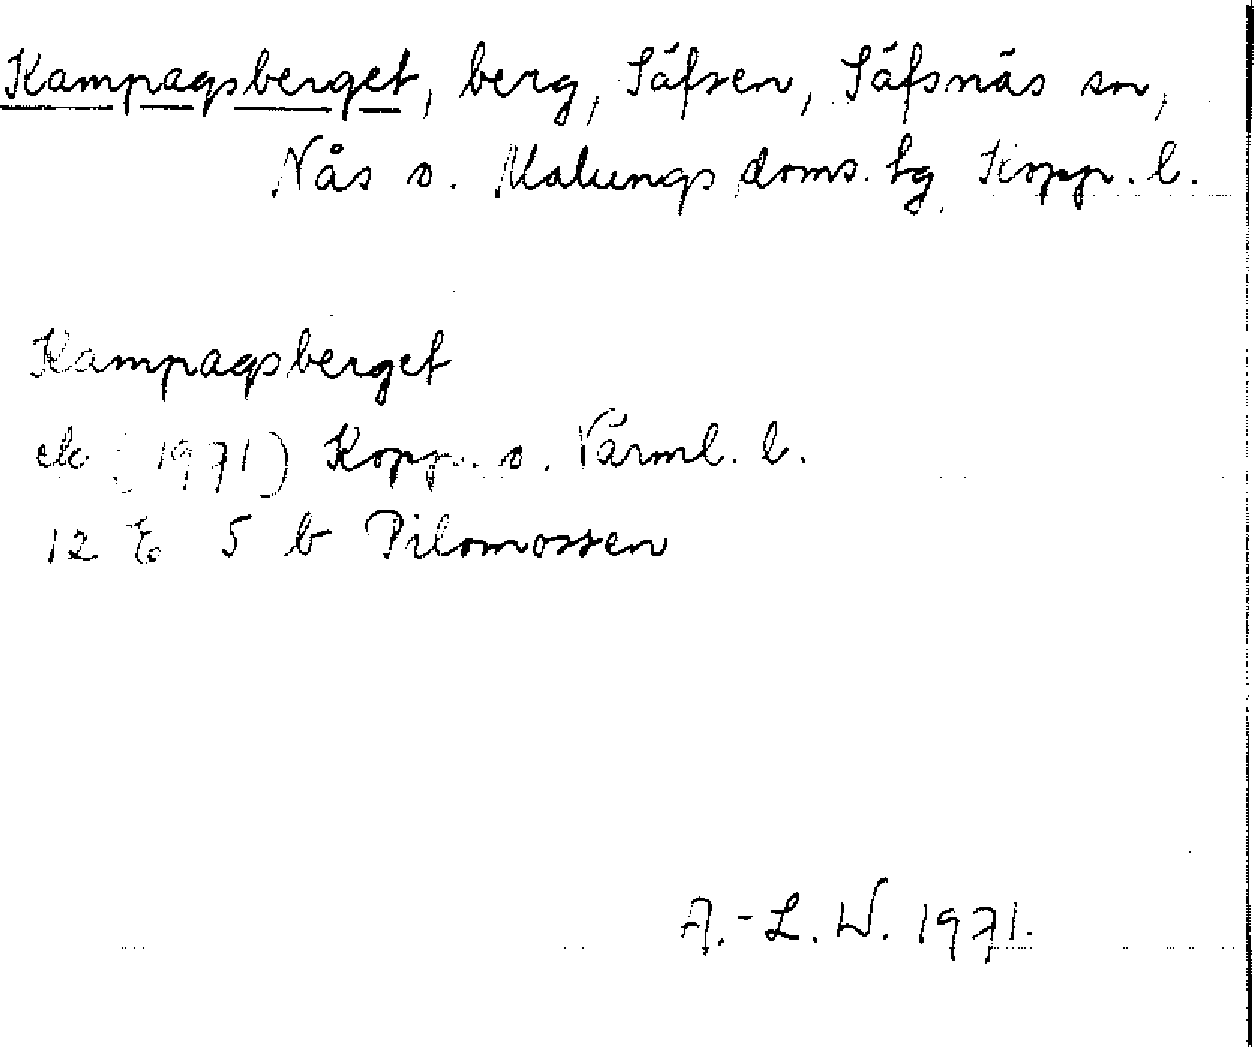 Kampagsberget, berg, Säfsen, Säfsnäs sn,
Nås o. Malungs doms. tg, Kopp. l.
Kampagsberget
ek (1971) Kopp. o. Värml. l.
12 E 5 b Pilomossen
A.-L. W. 1971.